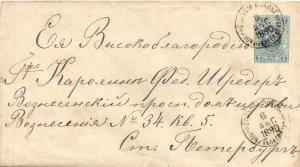 Ея Высокоблагородію
Гже Каролинѣ Фед. Шредеръ
Вознесенскій просп. домъ церкви
Вознесенія № 34. кв. 5.
Ст. Петербургъ
6
1890